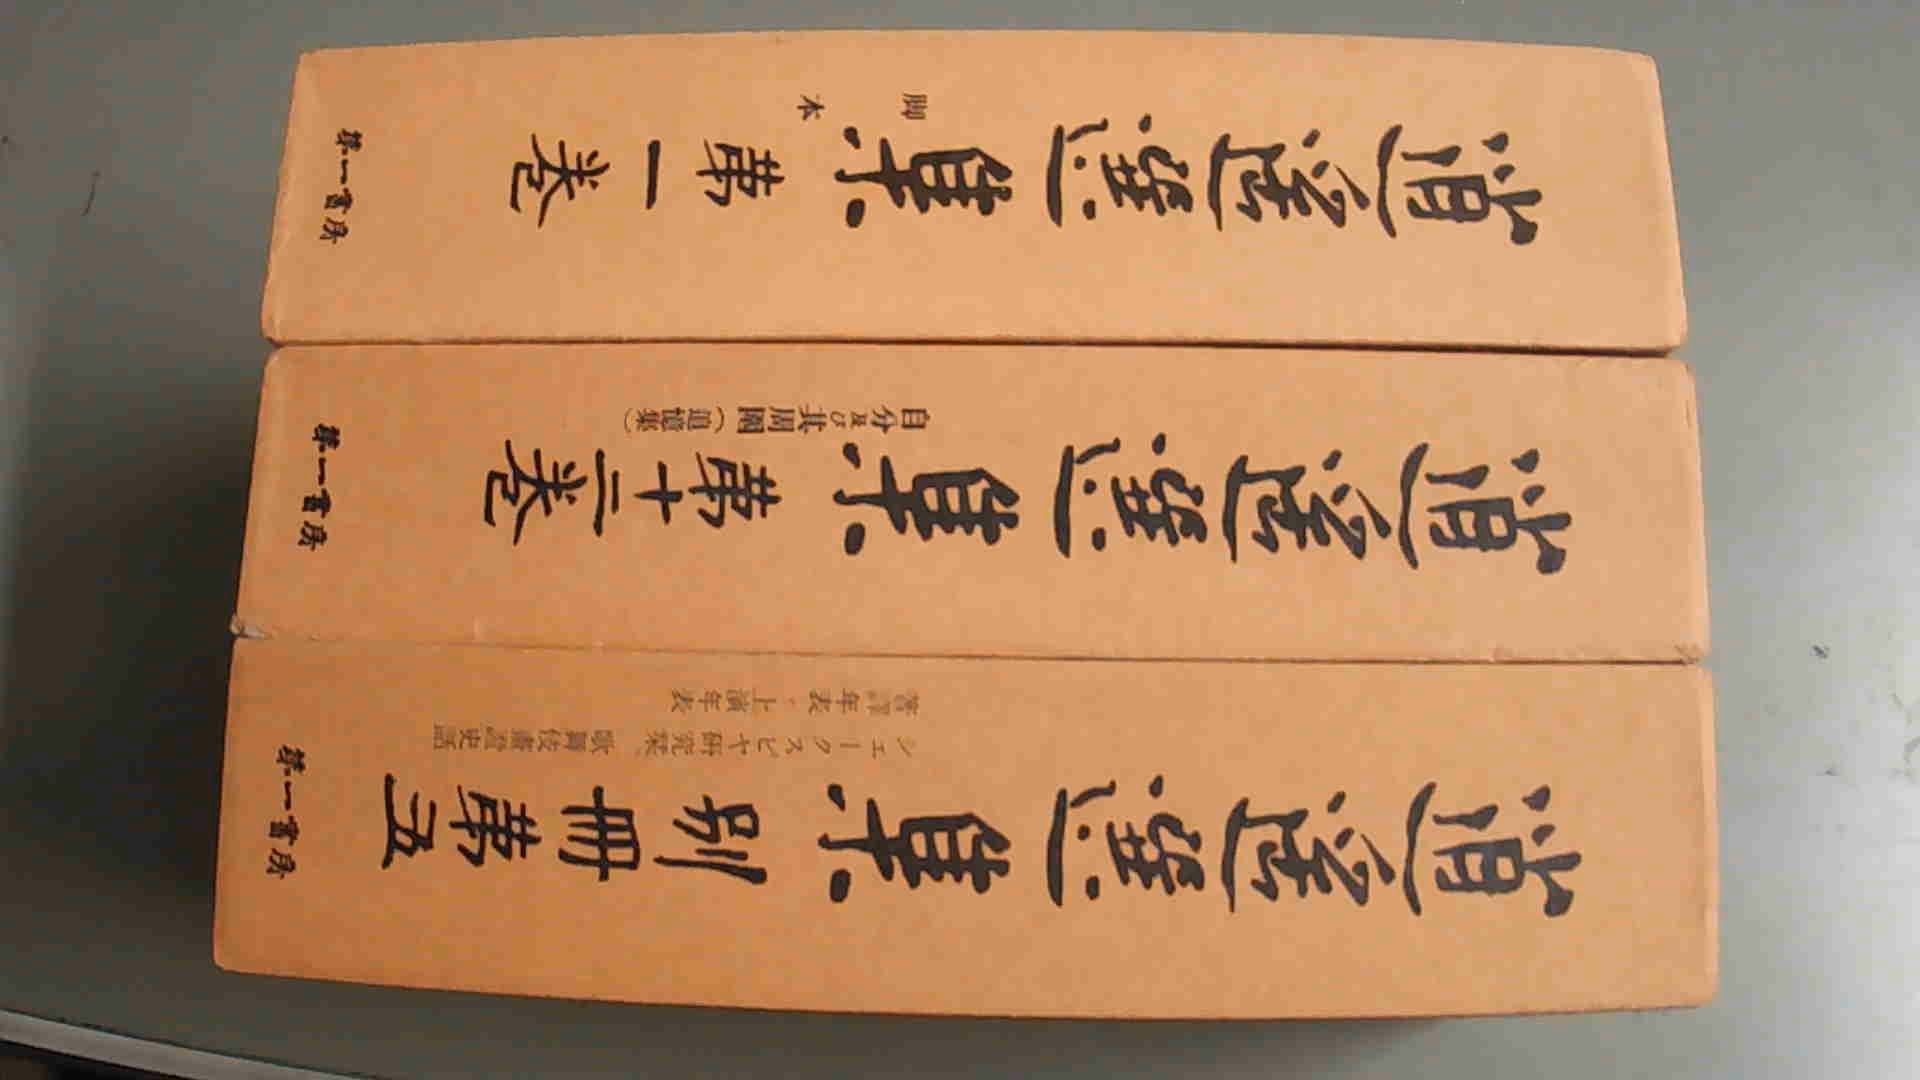 逍遙選集 第一卷
脚本
第一書房
逍遙選集 第十二卷
自分及び其周圍(追憶集)
第一書房
逍遙選集 別冊第五
シェークスピヤ研究栞、歌舞伎畫證史話
著譯年表・上演年表
第一書房